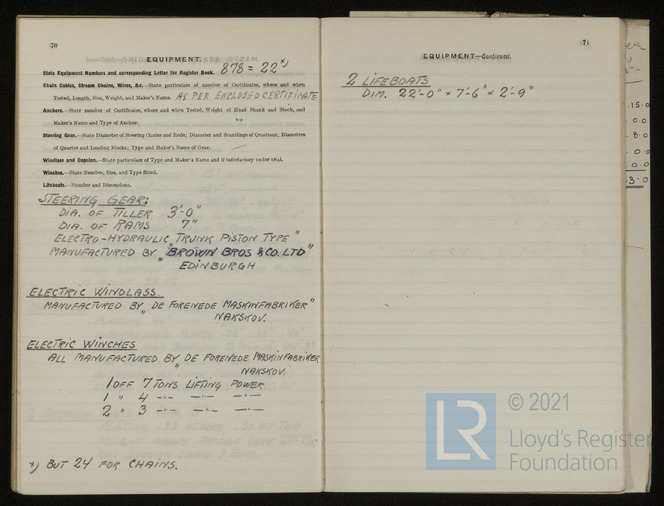 70
EQUIPMENT.
State Equipment Numbers and corresponding Letter for Register Book. 878 = 22 *)
Chain Cables, Stream Chains, Wires, &c.—State particulars of number of Certificates, where and when
Tested, Length, Size, Weight, and Maker's Name. AS PER ENCLOSED CERTIFICATE.
Anchors.—State number of Certificates, where and when Tested, Weight of Head Shank and Stock, and
Maker's Name and Type of Anchor.
Steering Gear.—State Diameter of Steering Chains and Rods; Diameter and Scantlings of Quadrant; Diameters
of Quarter and Leading Blocks; Type and Maker's Name of Gear.
Windlass and Capstan.—State particulars of Type and Maker's Name and if satisfactory under trial.
Winches.—State Number, Size, and Type fitted.
Lifeboats.—Number and Dimensions.
STEERING GEAR:
DIA. OF TILLER 3'-0"
DIA. OF RAMS 7"
ELECTRO-HYDRAULIC TRUNK PISTON TYPE"
MANUFACTURED BY "BROWN BROS & CO. LTD"
EDINBURGH
ELECTRIC WINDLASS.
MANUFACTURED BY "DE FORENEDE MASKINFABRIKER"
NAKSKOV.
ELECTRIC WINCHES
ALL MANUFACTURED BY "DE FORENEDE MASKINFABRIKER
NAKSKOV.
1 OFF 7 TONS LIFTING POWER
1 " 4 -"- -"- -"-
2 " 3 -"- -"- -"-
*) BUT 24 FOR CHAINS.
71
EQUIPMENT—Continued.
2 LIFEBOATS
DIM. 22'-0" × 7'-6" × 2'-9"
LR
© 2021
Lloyd's Register
Foundation